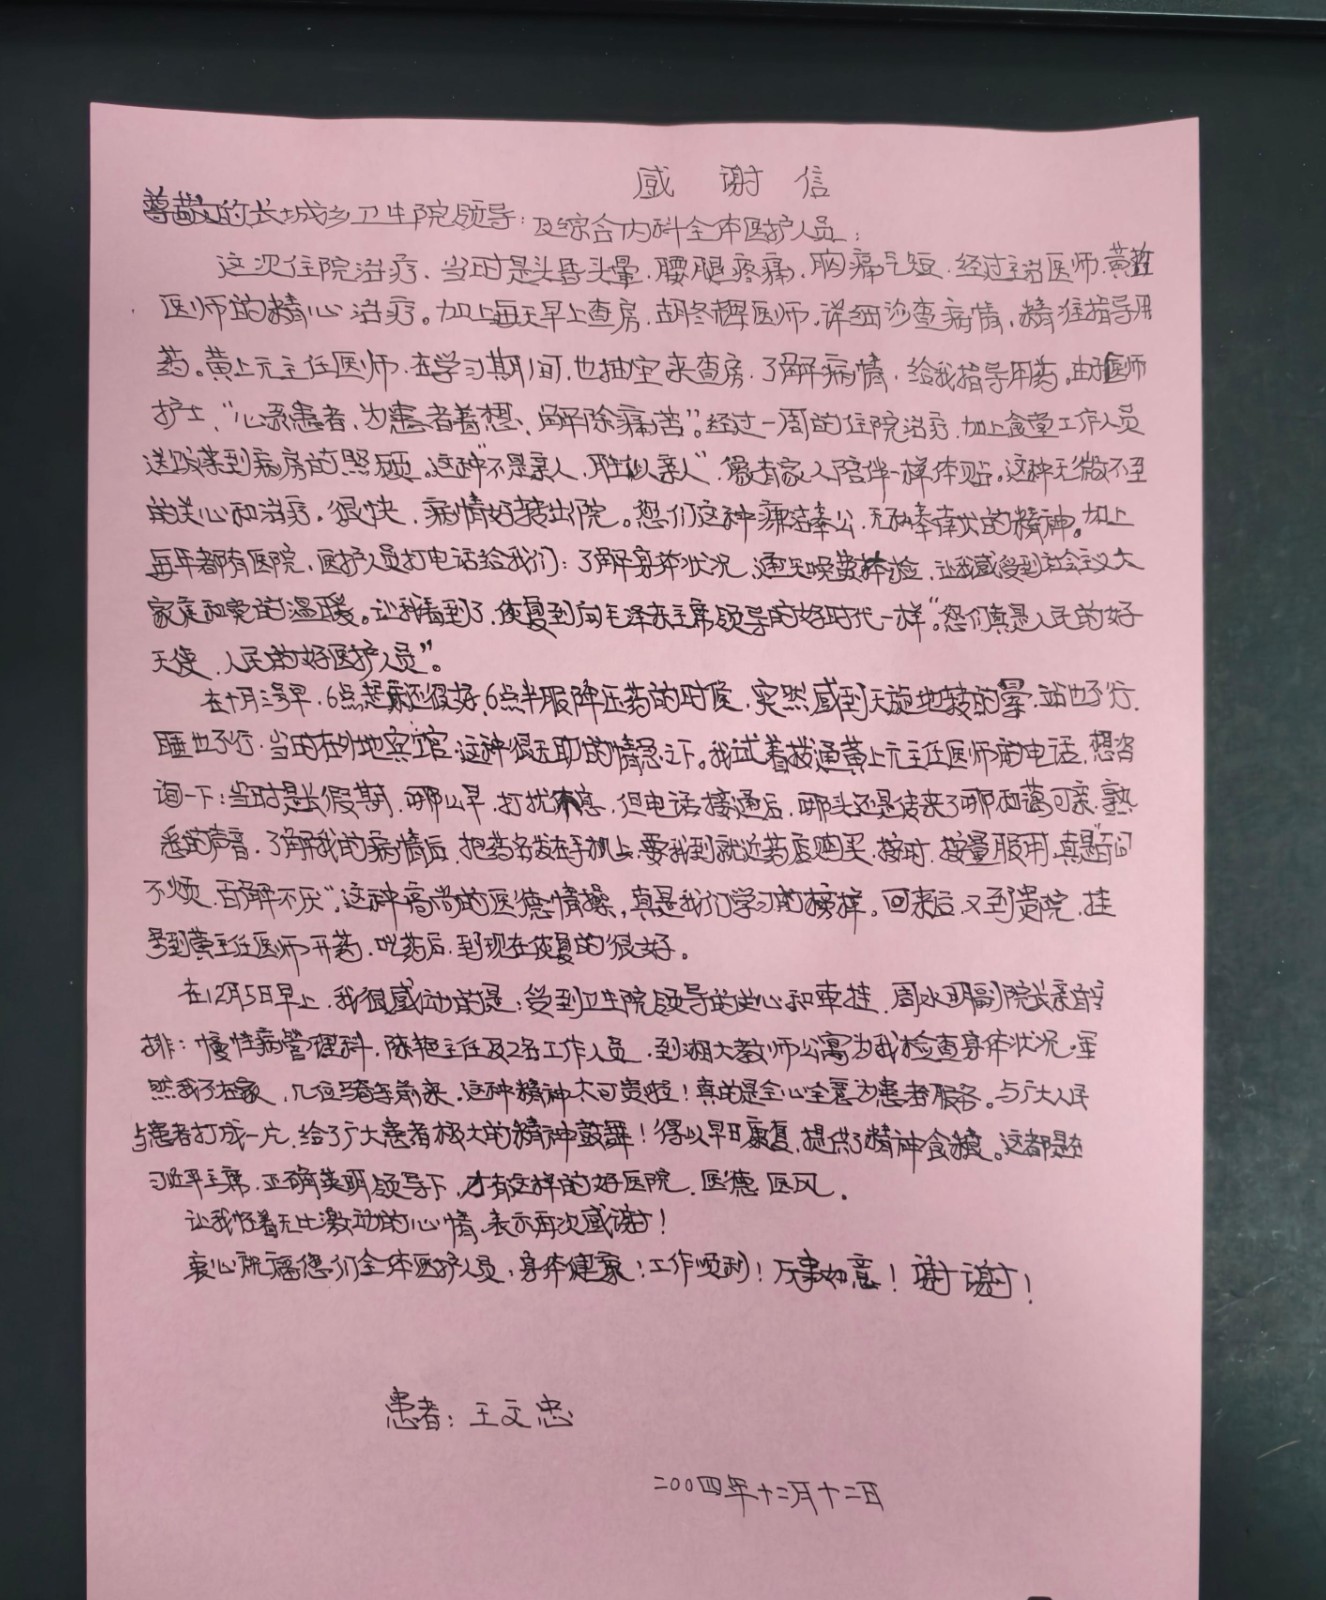 感谢信
尊敬的长城乡卫生院领导：及综合内科全体医护人员：
这次住院治疗，当时是头昏头晕，腰腿疼痛，胸痛气短，经过主治医师，黄
医师的精心治疗。加上每天早上查房，胡冬医师，详细诊查病情，精准指导用
药。黄上元主任医师，在学习期间，也抽空来查房，了解病情，给我指导用药。由于医师
护士，“心系患者，为患者着想，解除痛苦”。经过一周的住院治疗，加上食堂工作人员
送饭菜到病房的照顾。这种“不是亲人，胜似亲人”，像有家人陪伴一样体贴。这种无微不至
的关心和治疗，很快，病情好转出院。您们这种廉洁奉公，无私奉献的精神。加上
每年都有医院，医护人员打电话给我们：了解身体状况，通知免费体检，让我感受到社会主义大
家庭和党的温暖。让我看到了，恢复到向毛泽东主席领导的好时代一样“。您们真是人民的好
天使，人民的好医护人员”。
在十月三号早，6点起床还很好，6点半服降压药的时候，突然感到天旋地转的晕，站也不行，
睡也不行，当时在外地宾馆，这种很无助的情急之下。我试着拨通黄上元主任医师的电话，想咨
询一下：当时是长假期，哪么早，打扰休息，但电话接通后，哪头还是传来了哪和蔼可亲，熟
悉的声音，了解我的病情后，把药名发在手机上，要我到就近药店购买，按时，按量服用，真是“百问
不烦，百解不厌”，这种高尚的医德情操，真是我们学习的榜样。回来后，又到贵院，挂
号到黄主任医师开药，吃药后，到现在恢复的很好。
在12月5日早上，我很感动的是：受到卫生院领导的关心和牵挂，周水明副院长亲自安
排：慢性病管理科，陈艳主任及2名工作人员，到湘大教师公寓为我检查身体状况，虽
然我不在家，几位骑车前来，这种精神太可贵啦！真的是全心全意为患者服务。与广大人民
与患者打成一片，给了广大患者极大的精神鼓舞！得以早日康复，提供了精神食粮。这都是在
习近平主席，正确英明领导下，才有这样的好医院，医德医风。
让我怀着无比激动的心情，表示再次感谢！
衷心祝福您们全体医护人员，身体健康！工作顺利！万事如意！谢谢！
患者：王文忠
二00四年十二月十二日